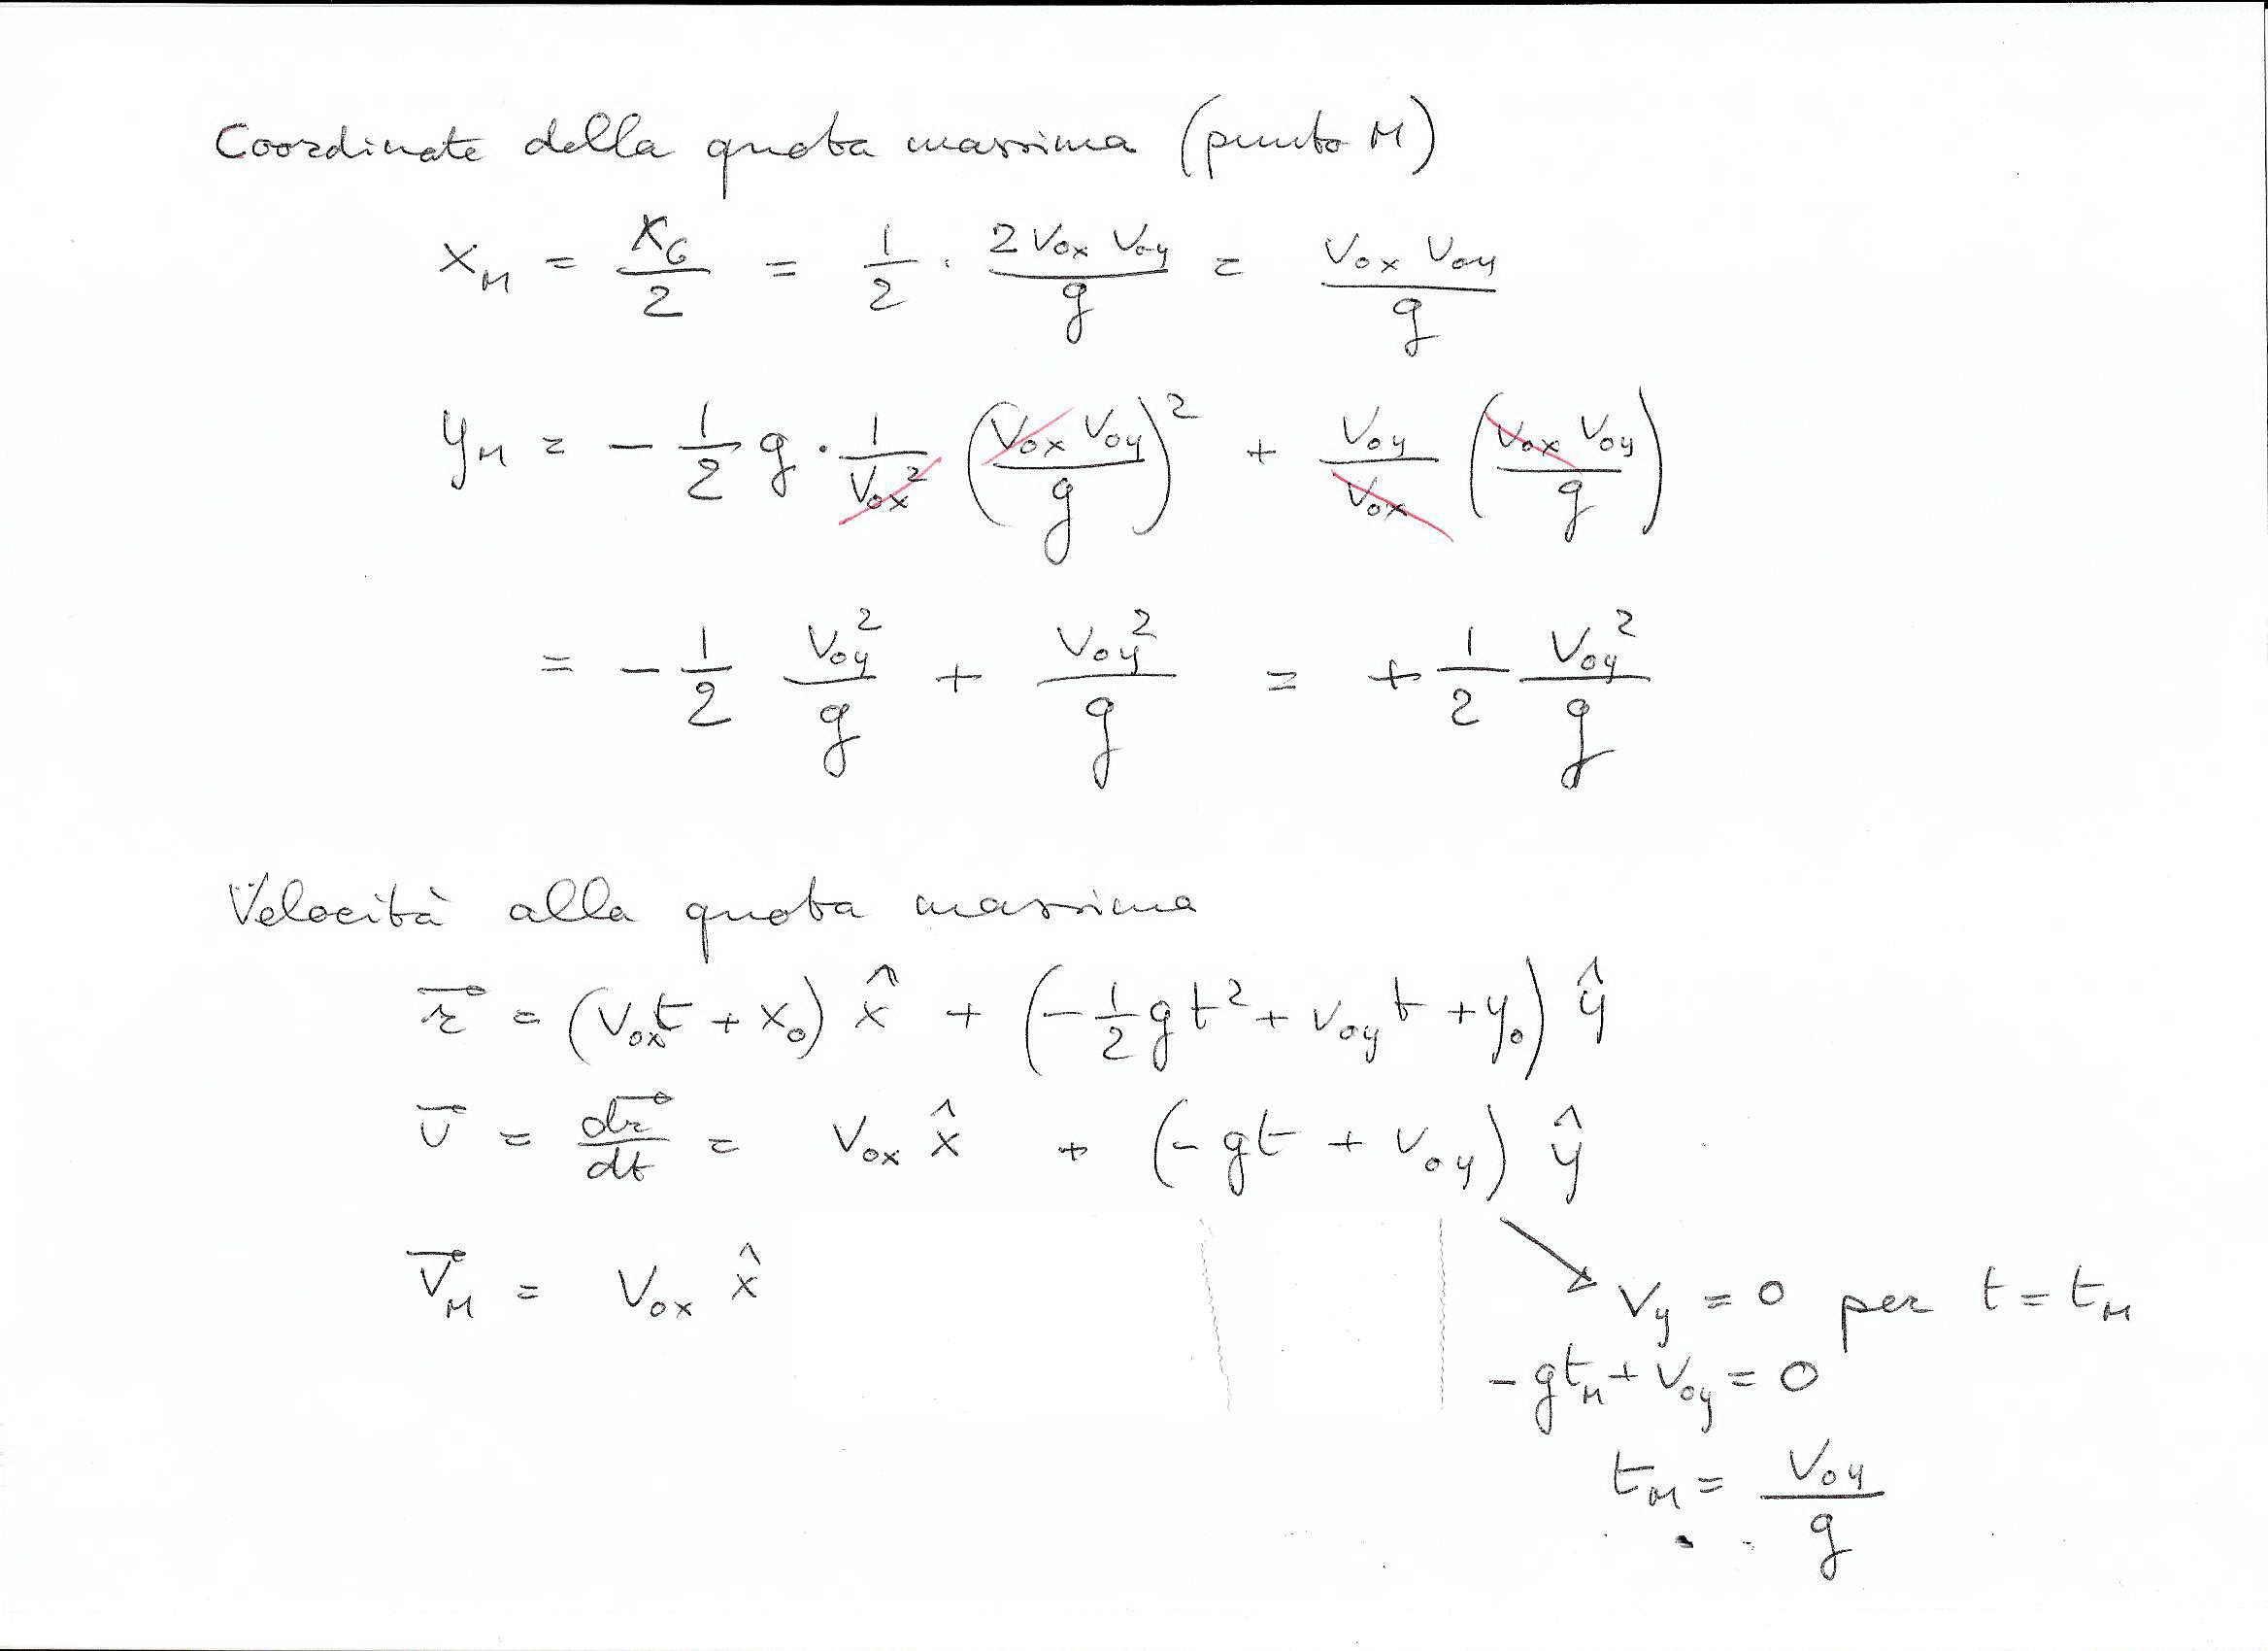 Coordinate della quota massima (punto M)
x_M = x_G/2 = 1/2 · 2 v_0x v_0y / g = v_0x v_0y / g
y_M = - 1/2 g · 1/v_0x² (v_0x v_0y / g)² + v_0y/v_0x (v_0x v_0y / g)
= - 1/2 v_0y²/g + v_0y²/g = + 1/2 v_0y²/g
Velocità alla quota massima
r⃗ = (v_0x t + x_0) x̂ + (- 1/2 g t² + v_0y t + y_0) ŷ
v⃗ = dr⃗/dt = v_0x x̂ + (- gt + v_0y) ŷ
v⃗_M = v_0x x̂
v_y = 0 per t = t_M
- gt_M + v_0y = 0
t_M = v_0y / g